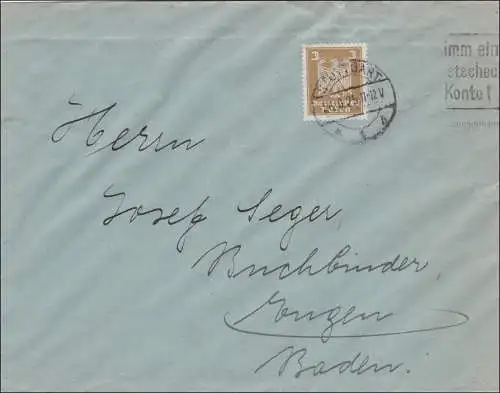 3 3
STUTTGART
11-12 V
Deutsches Reich
imm ein
stschec
Konto!
Herrn
Josef Seger
Buchbinder,
Engen
Baden.